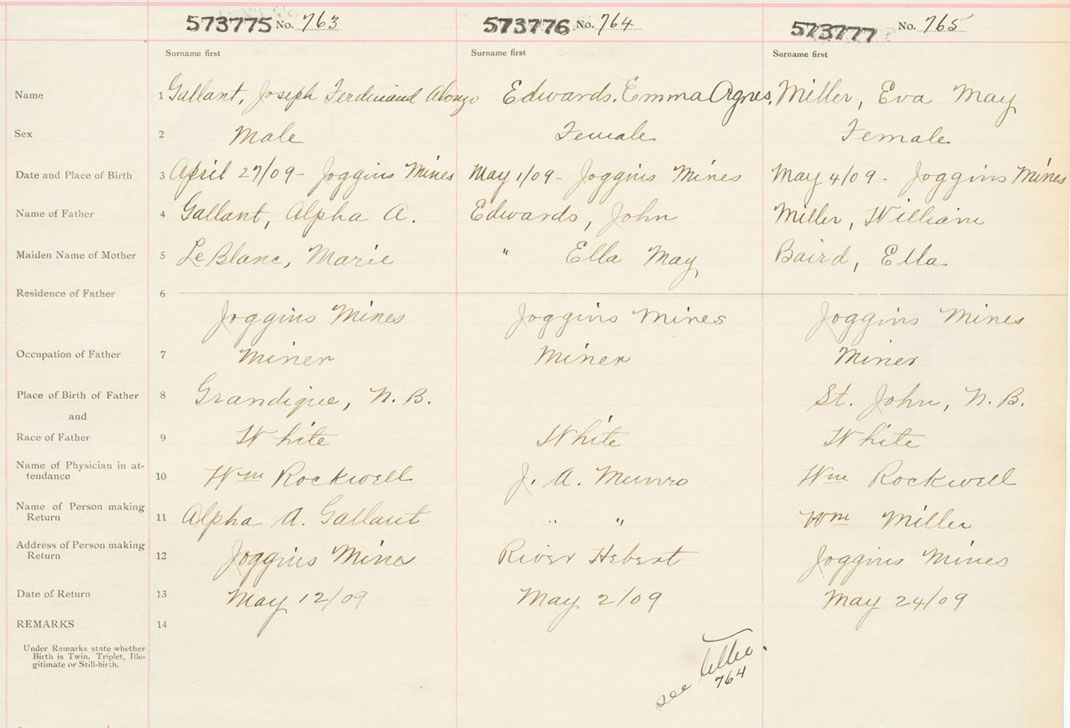 573775 No. 763 573776 No. 764 573777 No. 765
Surname first Surname first Surname first
Name 1 Gallant, Joseph Ferdinand Alonzo Edwards. Emma Agnes, Miller, Eva May
Sex 2 Male Female Female
Date and Place of Birth 3 April 27/09- Joggins Mines May 1/09- Joggins Mines May 4/09- Joggins Mines
Name of Father 4 Gallant, Alpha A. Edwards, John Miller, William
Maiden Name of Mother 5 LeBlanc, Marie " Ella May Baird, Ella
Residence of Father 6
Joggins Mines Joggins Mines Joggins Mines
Occupation of Father 7 Miner Miner Miner
Place of Birth of Father 8 Grandigue, N.B. St. John, N.B.
and
Race of Father 9 White White White
Name of Physician in at-
tendance 10 Wm Rockwell J. A. Munro Wm Rockwell
Name of Person making
Return 11 Alpha A. Gallant " " Wm Miller
Address of Person making
Return 12 Joggins Mines River Hebert Joggins Mines
Date of Return 13 May 12/09 May 2/09 May 24/09
REMARKS 14
Under Remarks state whether
Birth is Twin, Triplet, Ille-
gitimate or Still-birth.
see letter.
764